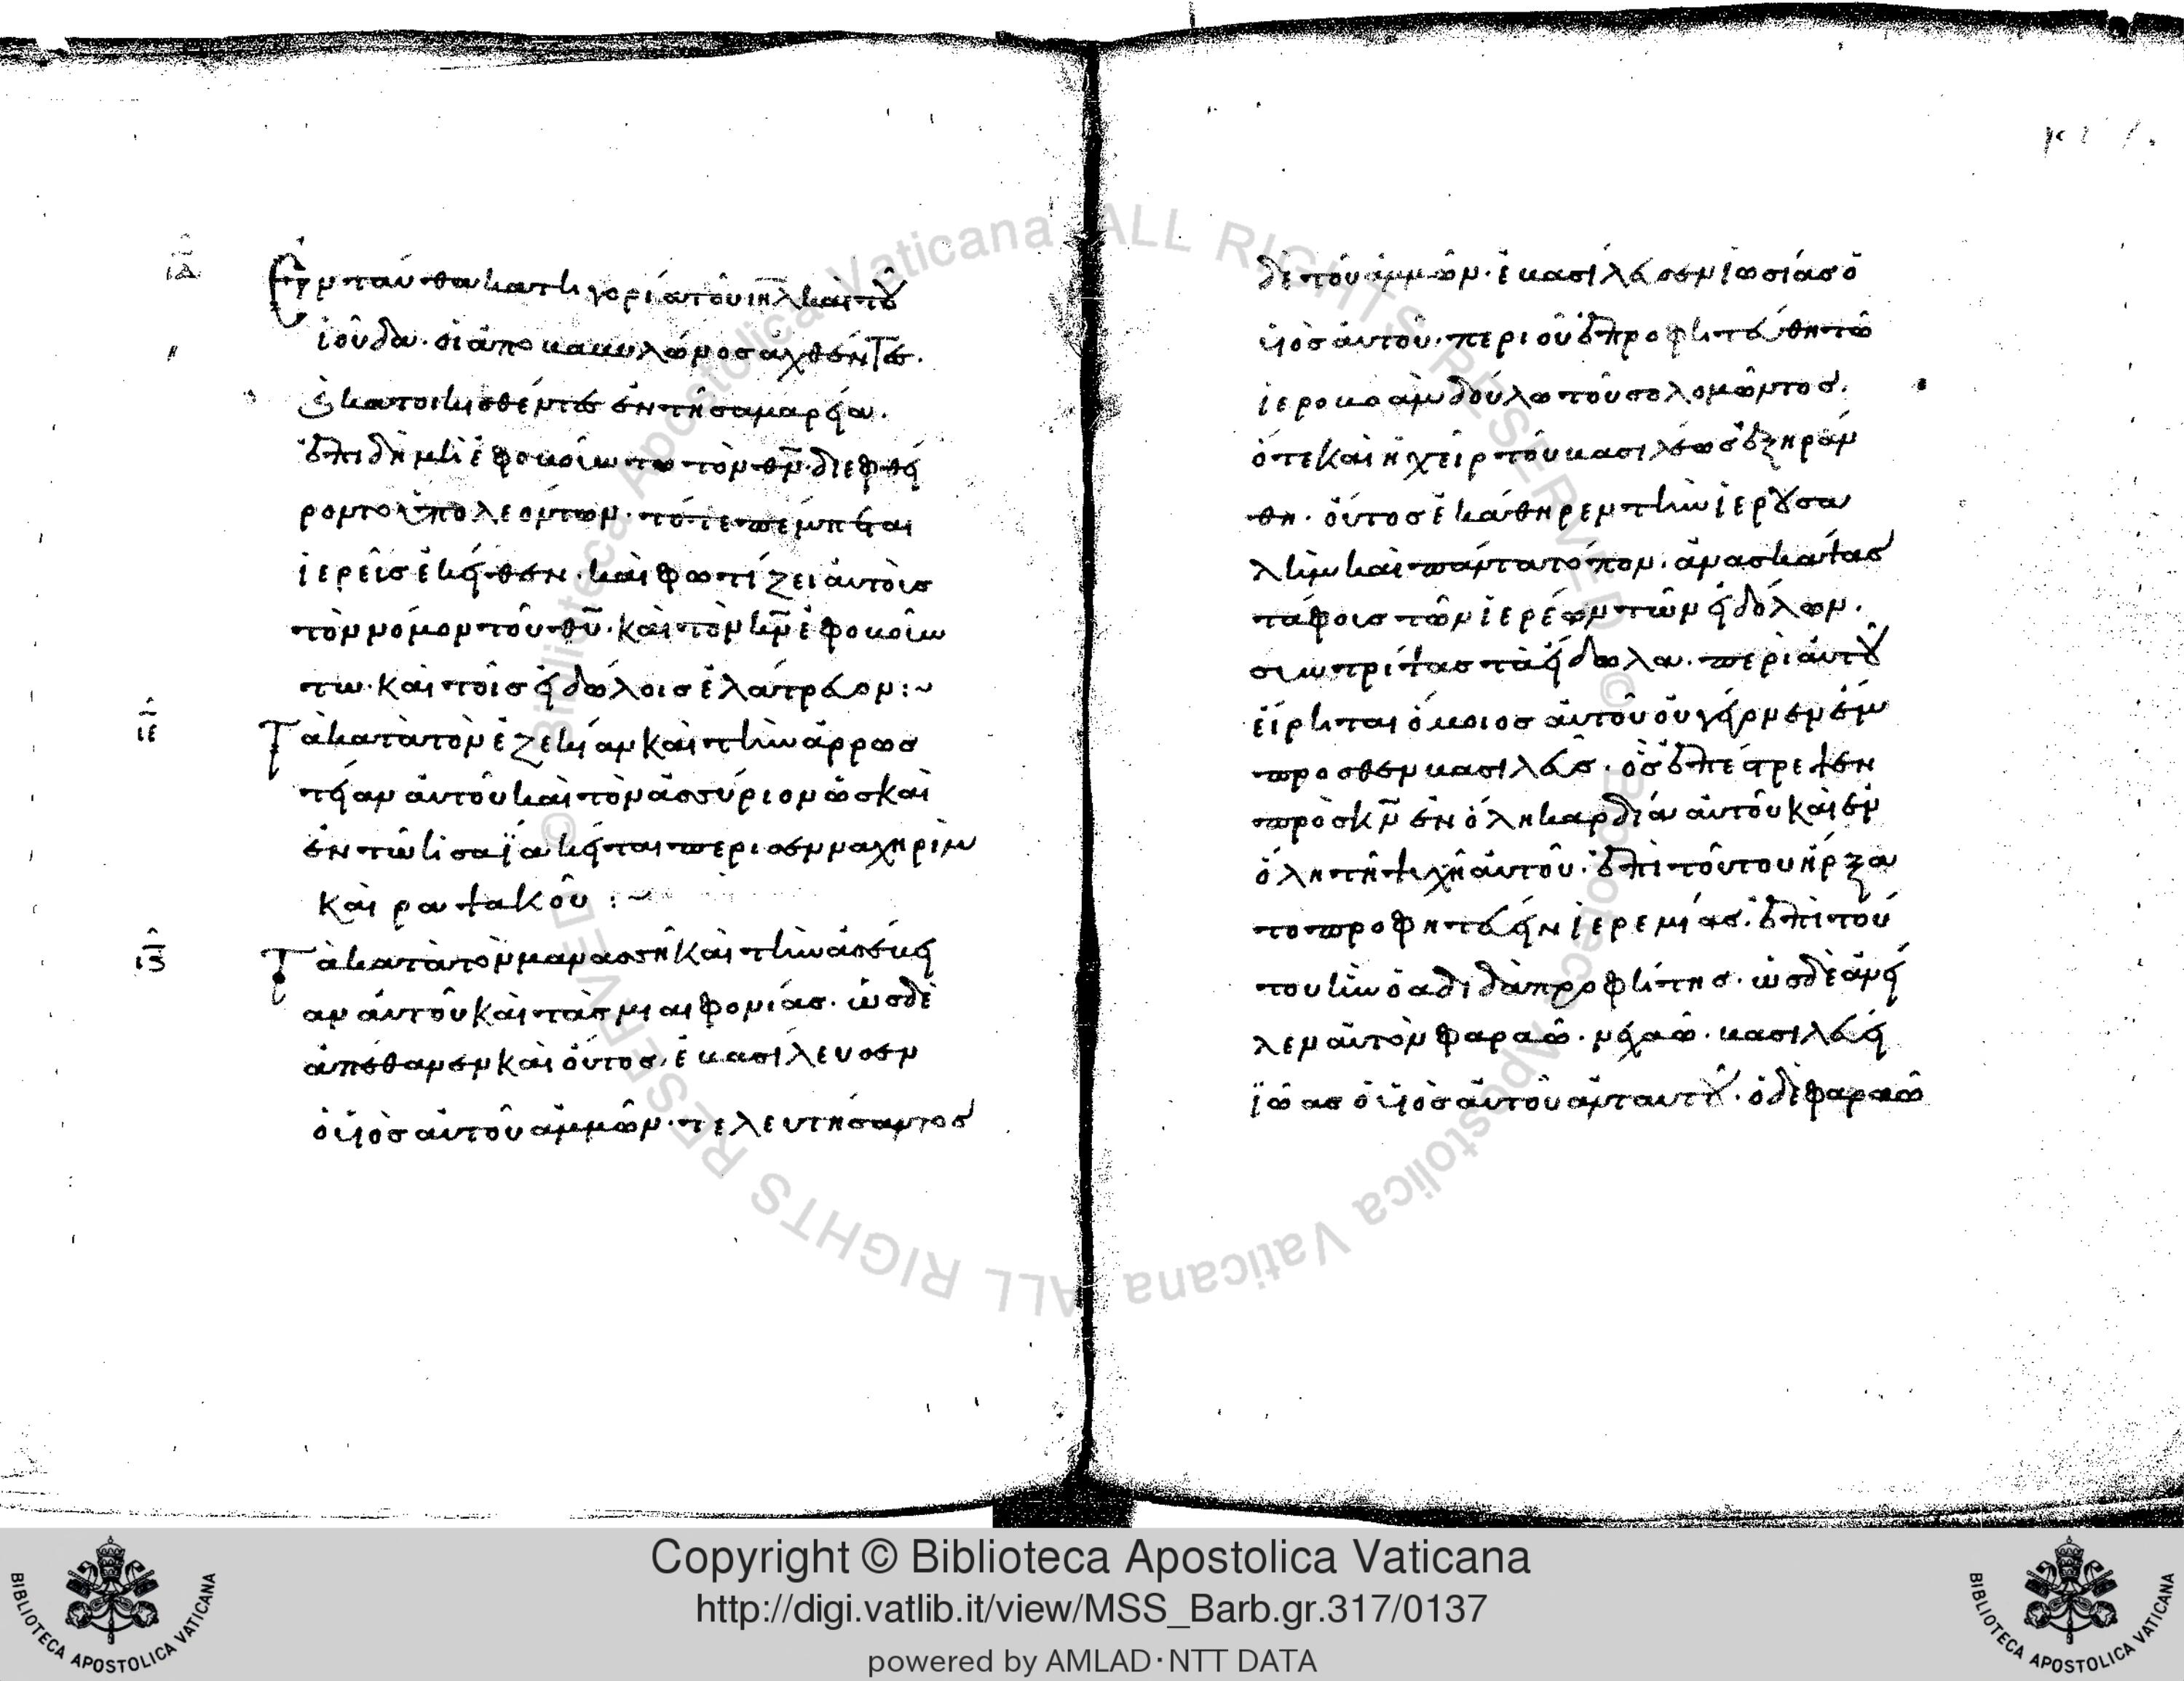 ιδ
Ἐνταύθα κατηγορία τοῦ ιη̅λ καὶ τοῦ
ἰούδα. οἱ ἀπο βαβυλῶνος ἀχθέντες.
ϗ κατοικισθέντες ἐν τῆ σαμαρεία.
ἐπιδὴ μὴ ἐφοβοῦντο τὸν θν̅. διεφθεί
ροντο ὑπο λεόντων. τότε πέμπεται
ἱερεῖς ἐκεῖθεν. καὶ φωτίζει αὐτοὶς
τὸν νόμον τοῦ θυ̅. καὶ τὸν κν̅ ἐφοβοῦν
το. καὶ τοῖς εἰδώλοις ἐλάτρευον :~
ιε
Τὰ κατὰ τὸν ἐζεκίαν καὶ τὴν ἀρρωσ
τείαν αὐτοῦ καὶ τὸν ἀσσύριον ὡς καὶ
ἐν τῶ ἡσαΐα κεῖται περι σενναχηρὶμ
καὶ ραψακοῦ :~
ις
Τὰ κατὰ τὸν μανασσῆ καὶ τὴν ἀσέβει
αν αὐτοῦ καὶ τὰς μιαιφονίας. ὡς δὲ
ἀπέθανεν καὶ οὗτος. ἐβασίλευσεν
ὁ υἱὸς αὐτοῦ ἀμμῶν. τελευτήσαντος
δὲ τοῦ ἀμμῶν. ἐβασίλευσεν ἰωσίας ὁ
υἱὸς αὐτοῦ. περι οὗ ἐπροφητεύθη τῶ
ἱεροβοὰμ δούλω τοῦ σολομῶντος.
ὅτε καὶ ἡ χεὶρ τοῦ βασιλέως ἐξηράν
θη. οὗτος ἐκάθηρεν τὴν ἱερουσα
λὴμ καὶ πάντα τόπον. ἀνασκάψας
τάφοις τῶν ἱερέων τῶν εἰδόλων.
συντρίψας τὰ εἴδωλα. περὶ αὐτοῦ
εἴρηται ὅμοιος αὐτοῦ οὐ γέγονεν ἐν
προσθεν βασιλεύς. ὃς ἐπέστρεψεν
πρὸς κν̅ ἐν ὅλη καρδία αὐτοῦ καὶ ἐν
ὅλη τῆ ψυχῆ αὐτοῦ. ἐπὶ τούτου ἤρξα
το προφητεύειν ἱερεμίας. ἐπὶ τού
του ἦν ὁ αδιδὰ προφήτης. ὡς δὲ ἀνεῖ
λεν αὐτὸν φαραῶ. νεχαῶ. βασιλεύει
ἰώας ὁ υἱὸς αὐτοῦ ἀντ αυτοῦ. ὁ δὲ φαραῶ
Copyright © Biblioteca Apostolica Vaticana
http://digi.vatlib.it/view/MSS_Barb.gr.317/0137
powered by AMLAD·NTT DATA
BIBLIOTECA APOSTOLICA VATICANA
BIBLIOTECA APOSTOLICA VATICANA